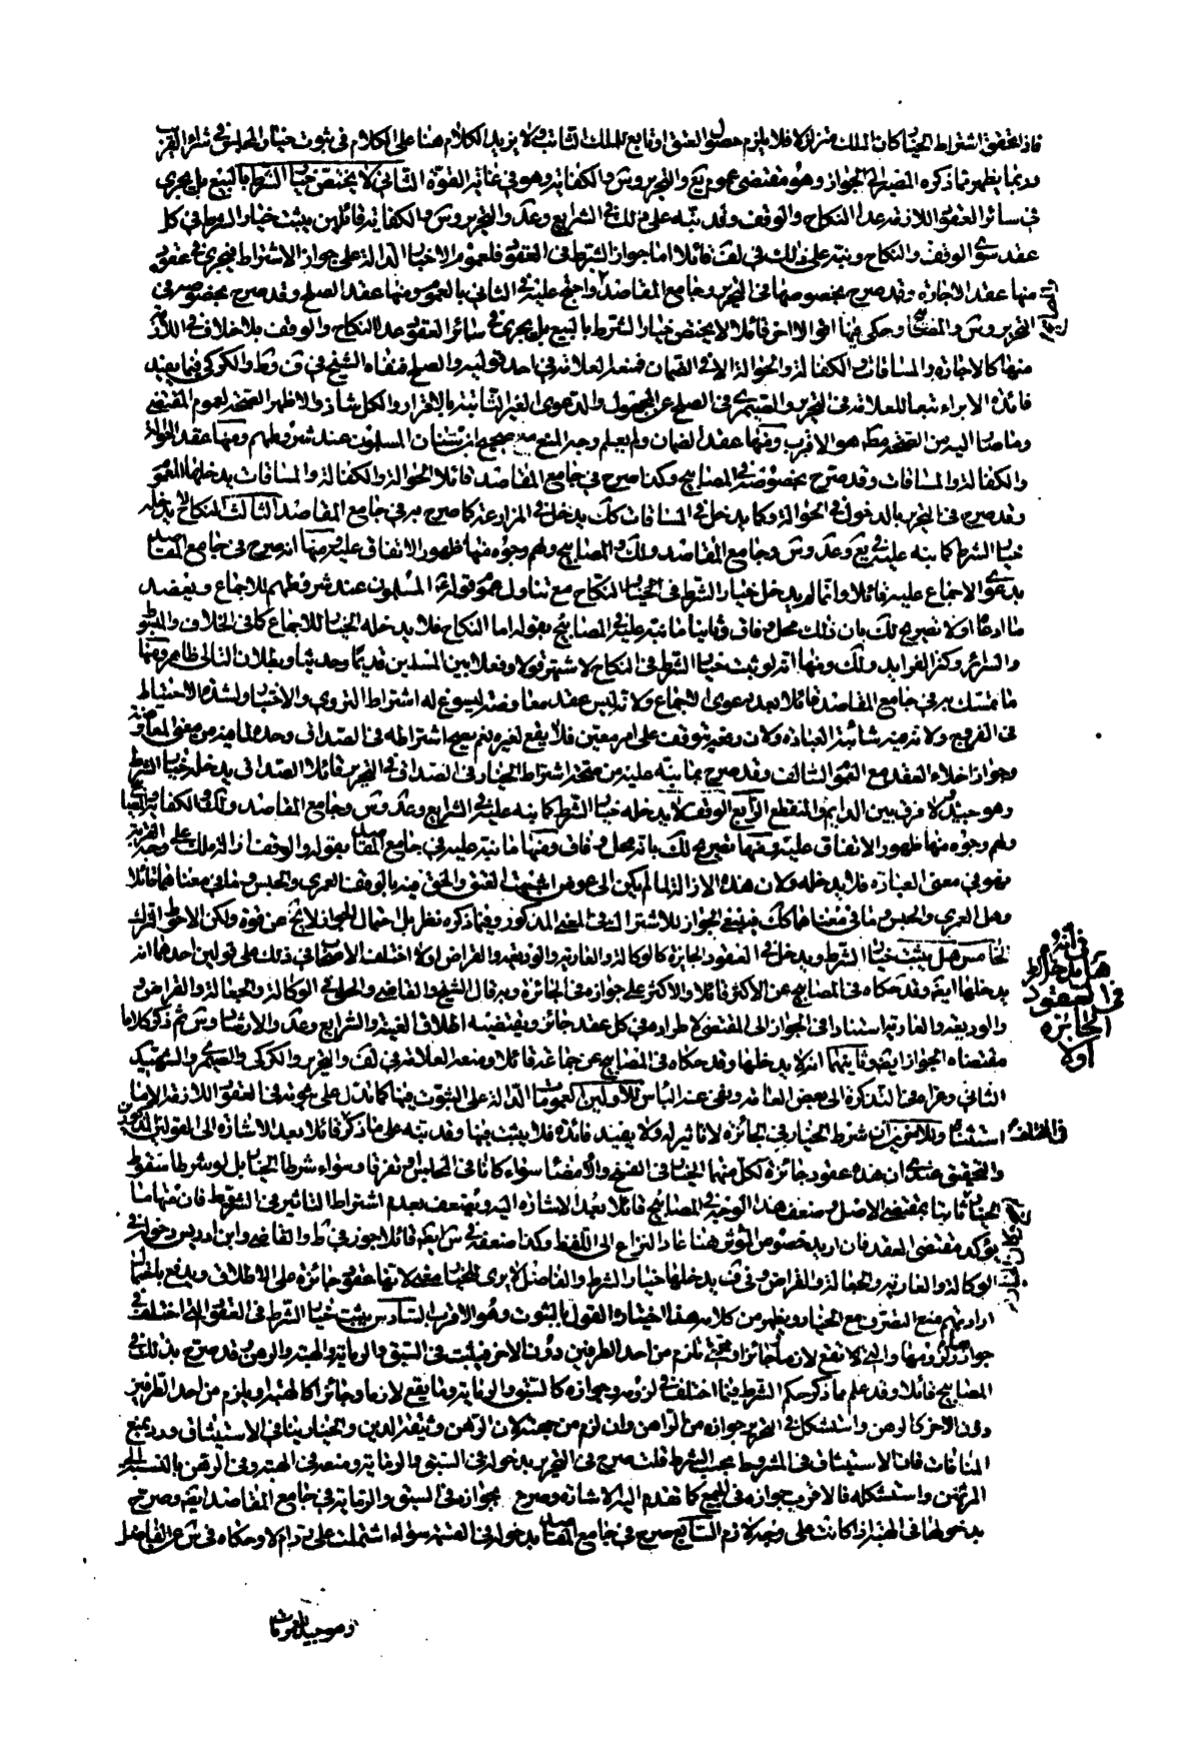 فاذا تحقق اشتراط الخيار كان الملك متزلزلا فلا يلزم حصول العتق اذ تابع للملك الثابت ولا يزيد الكلام هنا على الكلام في ثبوت خيار المجلس في شراء القريب
وربما يظهر مما ذكره المصير الى الجواز وهو مقتضى عموم يع والتحرير وس والكفاية وهو في غاية القوة الثاني لا يختص خيار الشرط بالبيع بل يجري
في سائر العقود اللازمة عدا النكاح والوقف وقد نبه على ذلك في الشرايع وعد والتحرير وس والكفاية قائلين يثبت خيار الشرط في كل
عقد سوى الوقف والنكاح ونبه على ذلك في لف قائلا اما جواز الشرط في العقود فلعموم الاخبار الدالة على جواز الاشتراط فيجري في عقود
منها عقد الاجارة وقد صرح بخصوصها في التحرير وجامع المقاصد واحتج عليه في الثاني بالعموم ومنها عقد الصلح وقد صرح بخصوصه في
التحرير وس والمصابيح وحكى فيها اقوالا اخر قائلا لا يختص خيار الشرط بالبيع بل يجري في سائر العقود عدا النكاح والوقف بلا خلاف في اللازم
منها كالاجارة والمساقات والكفالة والحوالة الا في الضمان فمنعه العلامة في احد قوليه والصلح فنفاه الشيخ في ف وط والكركي فيما يفيد
فائدة الابراء تبعا للعلامة في التحرير والصيمري في الصلح عن المجهول والدعوى الغير الثابتة بالاقرار والكل شاذ والاظهر الصحة لعموم المقتضي
وما صار اليه من الصحة مطلقا هو الاقرب ومنها عقد الضمان ولم يعلم وجه المنع مع صحيح ابن سنان المسلمون عند شروطهم ومنها عقد الحوالة
والكفالة والمساقات وقد صرح بخصوصه في المصابيح وكذا صرح في جامع المقاصد قائلا الحوالة والكفالة والمساقات يدخلها للعموم
وقد صرح في التحرير بالدخول في الحوالة وكما يدخل في المساقات كك يدخل في المزارعة كما صرح به في جامع المقاصد الثالث النكاح لا يدخله
خيار الشرط كما نبه عليه في يع وعد وس وجامع المقاصد ولك والمصابيح ولهم وجوه منها ظهور الاتفاق عليه ومنها انه صرح في جامع المقاصد
بدعوى الاجماع عليه قائلا وانما لم يدخل خيار الشرط في النكاح مع تناول عموم قوله المسلمون عند شروطهم للاجماع ويعضد
ما ادعاه اولا تصريح لك بان ذلك محل وفاق وثانيا ما نبه عليه في المصابيح بقوله اما النكاح فلا يدخله الخيار للاجماع كما في الخلاف والمبسوط
والسرائر وكنز الفوايد ولك ومنها انه لو ثبت خيار الشرط في النكاح لاشتهر قولا وفعلا بين المسلمين قديما وحديثا وبطلان التالي ظاهر ومنها
ما تمسك به في جامع المقاصد قائلا بعد دعوى الاجماع ولانه ليس عقد معاوضة ليسوغ له اشتراط التروي والاختبار ولشدة الاحتياط
في الفروج ولانه فيه شائبة العبادة ولان رفعه يتوقف على امر معين فلا يقع لغيره نعم يصح اشتراطه في الصداق وحده لما فيه من معنى المعاوضة
وجواز اخلاء العقد مع السالف وقد صرح بما نبه عليه من صحة اشتراط الخيار في الصداق في التحرير قائلا الصداق يدخله خيار الشرط
وهو جيد ولا فرق بين الدايم والمنقطع الرابع الوقف لا يدخله خيار الشرط كما نبه عليه في الشرايع وعد وس وجامع المقاصد ولك والكفاية
ولهم وجوه منها ظهور الاتفاق عليه ومنها تصريح لك بانه محل وفاق ومنها ما نبه عليه في جامع المقاصد بقوله والوقف ازالة ملك على وجه القربة
فهو في معنى العبادة فلا يدخله ولان هذه الازالة لما لم يكن الى عوض اشبهت العتق والحق فيه بالوقف العمرى والحبس وما في معناهما قائلا
وهل العمرى والحبس وما في معناهما كك فينبغي الجواز للاشتراك في المعنى المذكور وفيما ذكره نظر بل احتمال الجواز لا يخ عن قوة ولكن الاحوط الترك
الخامس هل يثبت خيار الشرط ويدخل في العقود الجايزة كالوكالة والعارية والوديعة والقراض اولا اختلف الاصحاب في ذلك على قولين احدهما انه
يدخلها ايضا وقد حكاه في المصابيح عن الاكثر قائلا والاكثر على جوازه في الجائزة وبه قال الشيخ والقاضي والحلي في الوكالة والجعالة والقراض و
والوديعة والعارية استنادا في الجواز الى المقتضي لاطراده في كل عقد جائز ويقتضيه اطلاق الغنية والشرايع وعد والارشاد وس ثم ذكر كلاما
مقتضاه الجواز ايضا وثانيهما انه لا يدخلها وقد حكاه في المصابيح عن جماعة قائلا ومنعه العلامة في لف والتحرير والكركي والصيمري والشهيد
الثاني وعزاه في التذكرة الى بعض العامة ونفى عنه الباس للاولين العمومات الدالة على الثبوت فيها كما تدل على ثبوته في العقود اللازمة الا ما
استثني وللاخرين ان شرط الخيار في الجائزة لا تاثير له ولا يفيد فائدة فلا يثبت فيها وقد نبه على ما ذكر قائلا بعد الاشارة الى القولين المذكورين
والتحقيق عندي ان هذه عقود جائزة لكل منهما الخيار في الفسخ والامضاء سواء كانا في المجلس او تفرقا وسواء شرطا الخيار بل لو شرطا سقوط
الخيار ثابتا بمقتضى الاصل وضعف هذا الوجه في المصابيح قائلا بعد الاشارة اليه ويضعف بعدم اشتراط التاثير في الشروط فان منها ما
يؤكد مقتضى العقد فان اريد خصوص المؤثر هنا عاد النزاع الى اللفظ وكذا ضعفه في س ايضا قائلا جوز في ط والقاضي وابن ادريس دخوله في
الوكالة والعارية والجعالة والقراض وفي ف يدخلها خيار الشرط والفاضل لا يرى للخيار معنى لانها عقود جائزة على الاطلاق ويدفع باحتمال
ارادتهم منع التصرف مع الخيار ويظهر من كلامه هذا اختيار القول بالثبوت وهو الاقرب السادس يثبت خيار الشرط في العقود التي اختلف في
جوازها ولزومها والتي لا تقع لازما وجائزا والتي تلزم من احد الطرفين دون الاخر فيثبت في السبق والرماية والهبة والرهن وقد صرح بذلك في
المصابيح قائلا وقد علم مما ذكر حكم الشرط فيما اختلف في لزومه وجوازه كالسبق والرماية وما يقع لازما وجائزا كالهبة او يلزم من احد الطرفين
دون الاخر كالرهن واستشكل في التحرير جوازه من الراهن وان لزم من جهته لان الرهن وثيقة الدين والخيار ينافي الاستيثاق ورد بمنع
المنافات فان الاستيثاق في المشروط بحسب الشرط قلت صرح في التحرير بدخوله في السبق والرماية ومنعه في الهبة وفي الرهن بالنسبة الى
المرتهن واستشكله فالاقرب جوازه في الجميع كما تقدم اليه الاشارة وصرح بجوازه في السبق والرماية في جامع المقاصد ايضا وصرح
بدخولها في الهبة اذا كانت على وجه لازم السابع صرح في جامع المقاصد بدخوله في القسمة سواء اشتملت على رد ام لا وحكاه في س عن الفاضل
في انه
هل يدخل الشرط
في العقود
الجائزة
او لا
وهو جيد للعمومات